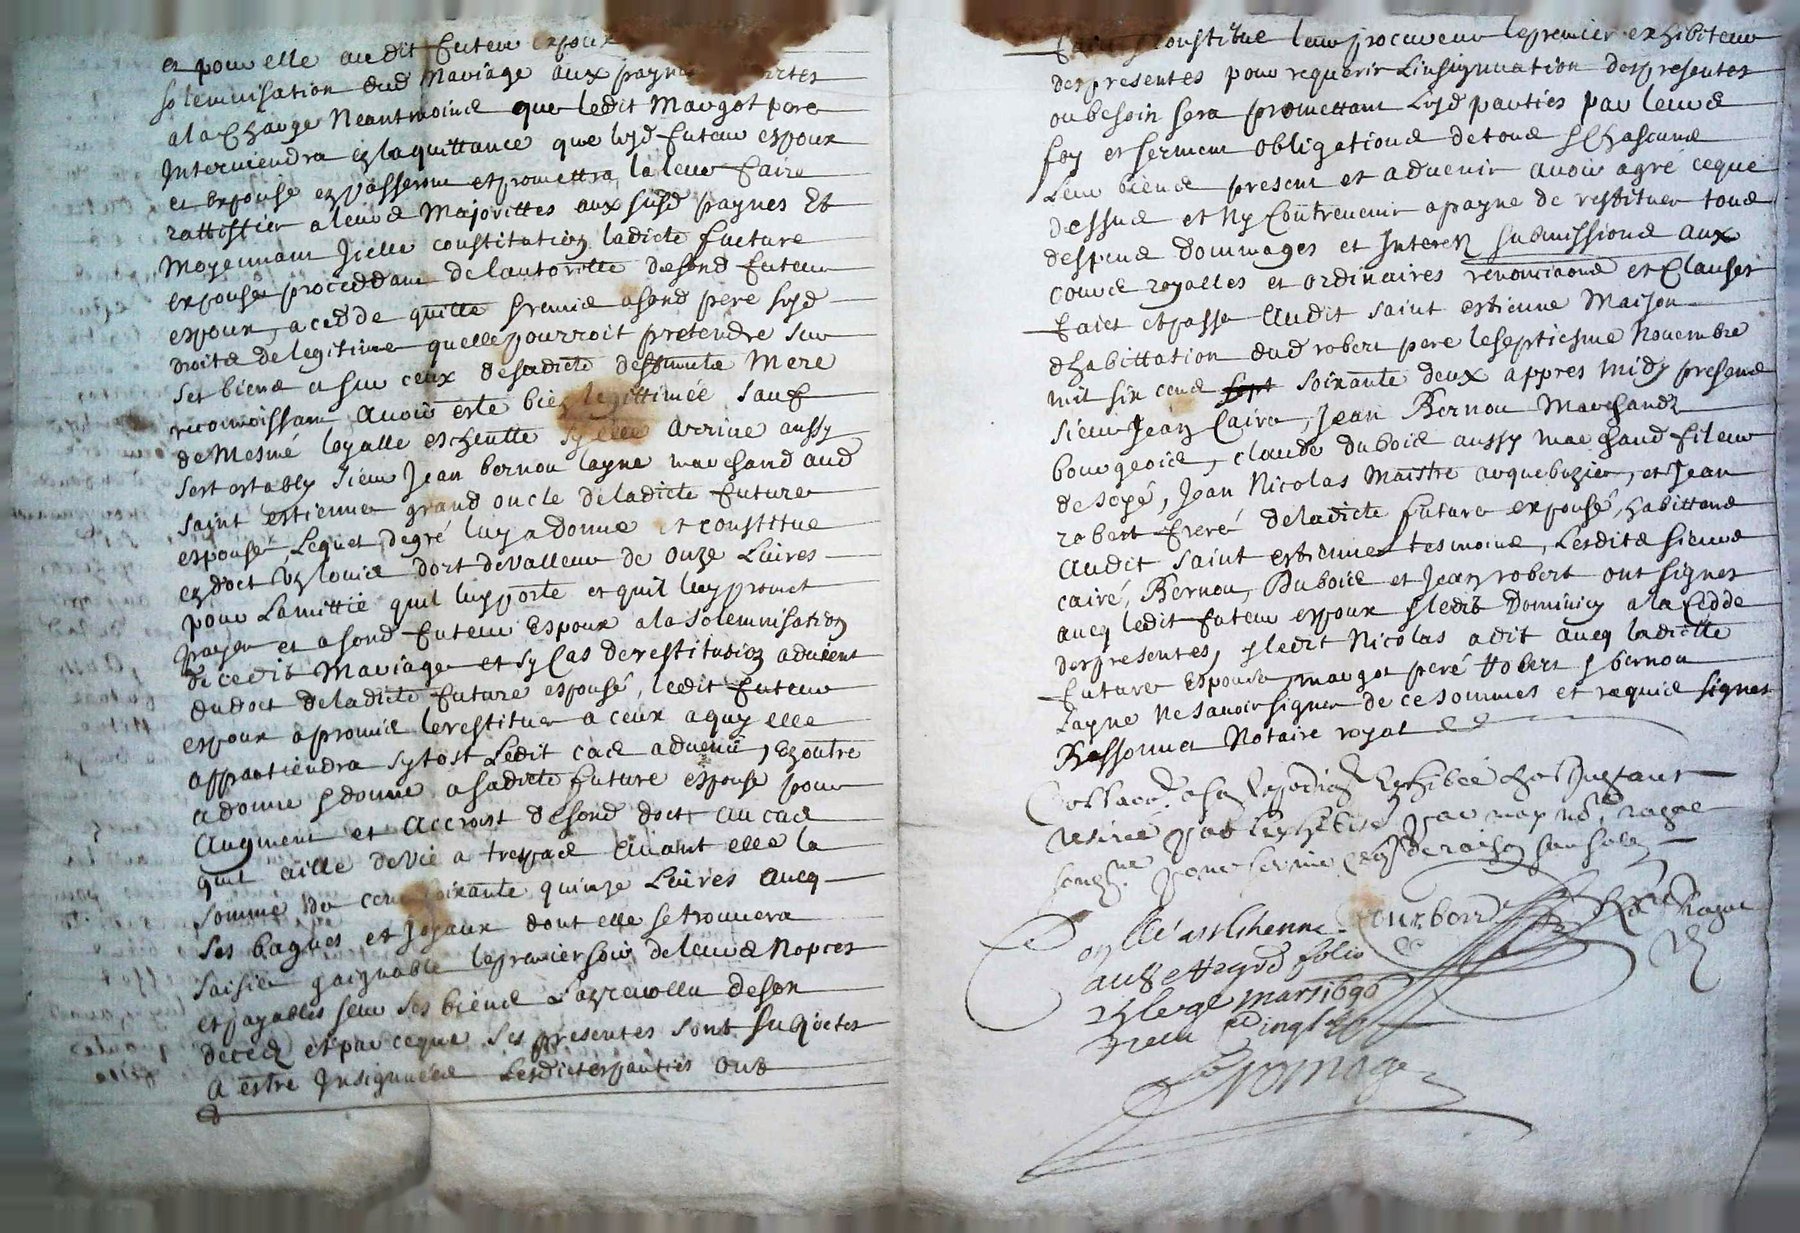 et pour elle audit futeur espoux
solemnisation dud mariage aux paynes
a la charge neantmoins que ledit Margot pere
Interviendra en la quittance que lesd futeur espoux
et espouse en passeront et promettra la leur faire
rattiffier a leurs majorittes aux susd paynes Et
moyennant Jcelle constitution ladicte facture
espouse proceddant de lautoritte desond futeur
espoux, a cedde quitte et remis a sond pere susd
droits de legitime quelle pourroit pretendre sur
ses biens et sur ceux de sadicte deffuncte mere
recoinoissant avoir este bien legittimée sauf
de mesme loyalle escheutte sy elle arrive aussy
sest estably sieur Jean bernou layne marchand aud
saint estienne grand oncle de ladicte future
espouse Lequel degré luy a donne et constitue
en doct un louis dort de valleur de onze Livres
pour Lamittie quil luy porte et quil luy promet
payer et a sond futeur Espoux a la solemnisation
de cedit mariage et sy cas de restitution advient
du doct de ladicte future espousé, ledit futeur
espoux a promis le restituer a ceux a quy elle
appartiendra sytost Ledit cas advenu, En outre
a donne et donne a sadicte future espouse pour
Augment et accroist desond doct au cas
quil aille de vie a trespas avant elle la
somme de cent soixante quinze Livres avec
ses bagues et joyaux dont elle se trouvera
saisie gaignable le premier soir de leurs nopces
et payables sur ses biens
deced et par ce que ses presentes sont subjectes
a estre Insignuées Lesdictes parties ont
constitue leur procureur le premier exhibiteur
des presentes pour requerir Linsignuation des presentes
ou besoin sera promettant Lesd parties par leurs
foy et serment obligations de tous et chascuns
Leur biens present et advenir avoir agre ce que
dessus et ny contrevenir a payne de restituer tous
despens dommages et Interests submissions aux
cours royalles et ordinaires renonciaons et Clauses
faict et passe audit saint estienne Maison
dhabittation dud robert pere le septiesme Novembre
mil six cens soixante deux appres midy presens
sieur Jean Caire, Jean Bernou Marchandz
bourgeois, claude dubois aussy marchand fileur
de soyé, Jean Nicolas maistre arquebuzier, et Jean
robert freré de ladicte future espousé, habittans
audit saint estienne tesmoins, Lesdits sieurs
cairé, Bernou, Dubois et Jean robert ont signes
avecq ledit futeur espoux et ledit Dominicq a la cedde
des presentes, et ledit Nicolas a dit avecq ladicte
future Espouse margot peré Robert et bernou
Layne ne savoir signer de ce sommes et requis signes
Bessonnet Notaire royal
Collaoné a son Expedion Exhibée
Con.lle a st Estienne
folio
mars 1696
Fromage